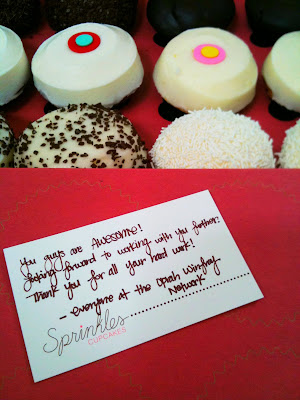 You guys are Awesome!
Looking forward to working with you further.
Thank you for all your hard work!
- everyone at the Oprah Winfrey
Network
Sprinkles
CUPCAKES